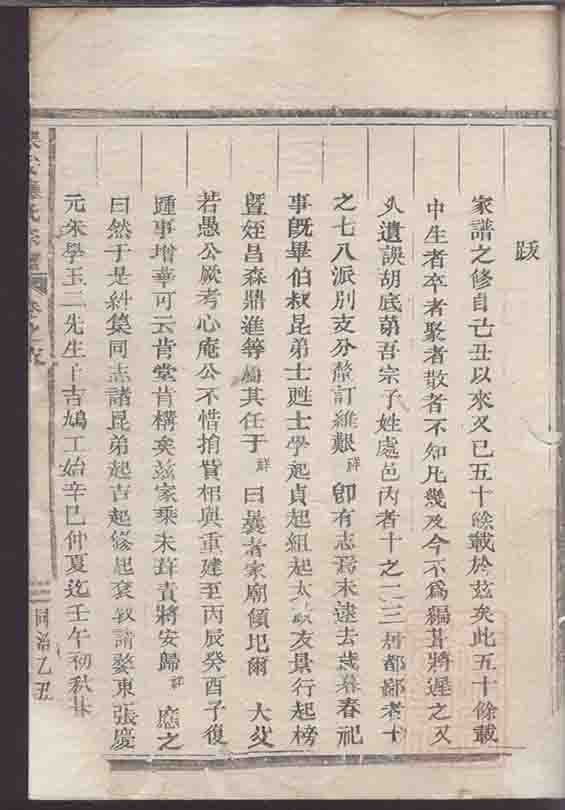 跋
家譜之修自己丑以來又已五十餘載於玆矣此五十餘載
中生者卒者聚者散者不知凡幾及今不爲編葺將遲之又
久遺誤胡底第吾宗子姓處邑內者十之二三居都鄙者十
之七八派別支分釐訂維艱祥卽有志焉未逮去歲暮春祀
事旣畢伯叔昆弟士甦士學起貞起組起太 友景行起榜
曁姪昌森鼎進等 其任于祥曰曩者家廟傾圯爾大父
若愚公厥考心庵公不惜捐貲相與重建至丙辰癸酉子復
踵事增華可云肯堂肯構矣玆家乘未葺責將安歸祥應之
曰然于是糾集同志諸昆弟起吉起修起袞 請婺東張慶
元朱學玉二先生卜吉鳩工始辛巳仲夏迄壬午初秋
氏宗譜 卷之
同治乙丑